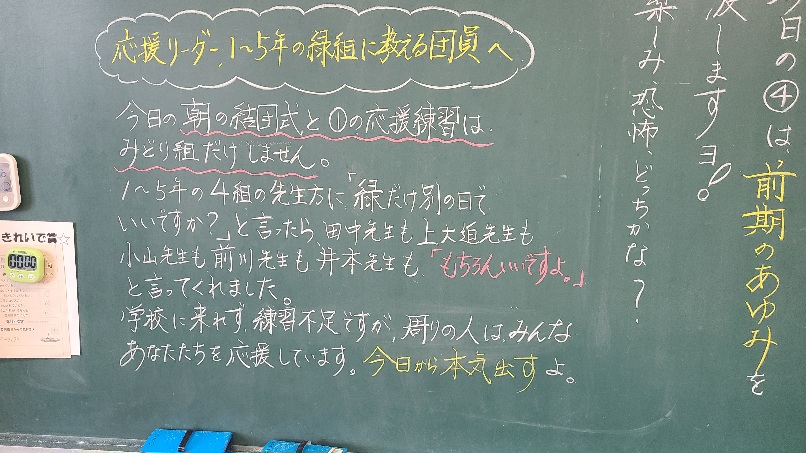 応援リーダー、1〜5年の緑組に教える団員へ
今日の朝の結団式と①の応援練習は、
みどり組だけしません。
1〜5年の4組の先生方に「緑だけ別の日で
いいですか？」と言ったら、田中先生も上大迫先生も
小山先生も前川先生も、井本先生も、「もちろんいいですよ。」
と言ってくれました。
学校に来れず、練習不足ですが、周りの人は、みんな
あなたたちを応援しています。今日から本気出すよ。
今日の④は、前期のあゆみを
渡しますヨ!。
楽しみ、恐怖、どっちかな？
きれいで賞☆
00:00